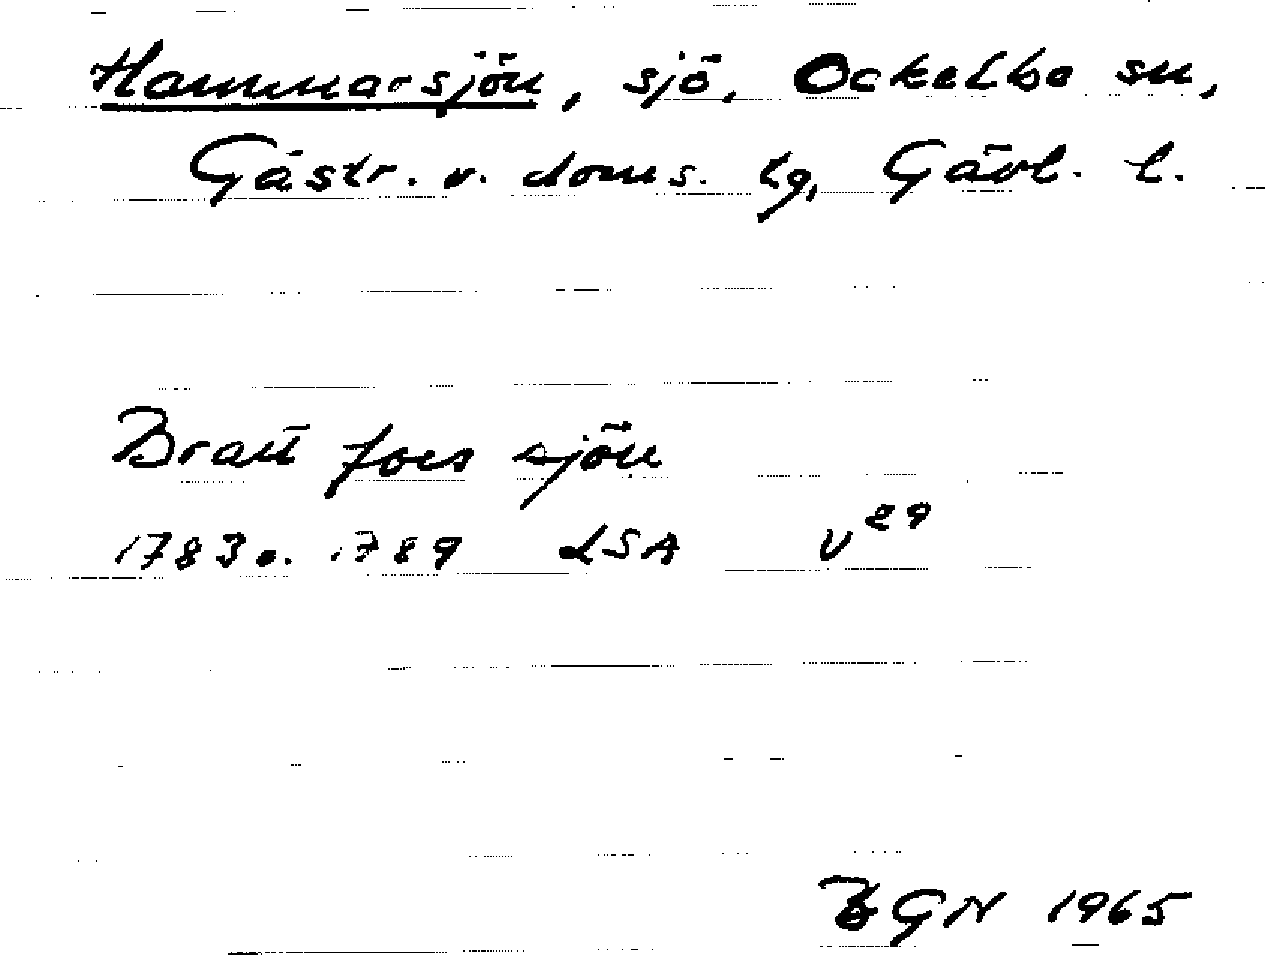 Hammarsjön, sjö, Ockelbo sn,
Gästr. v. doms. lg, Gävl. l.
Bratt fors sjön
1783 o. 1789 LSA U 29
BGN 1965